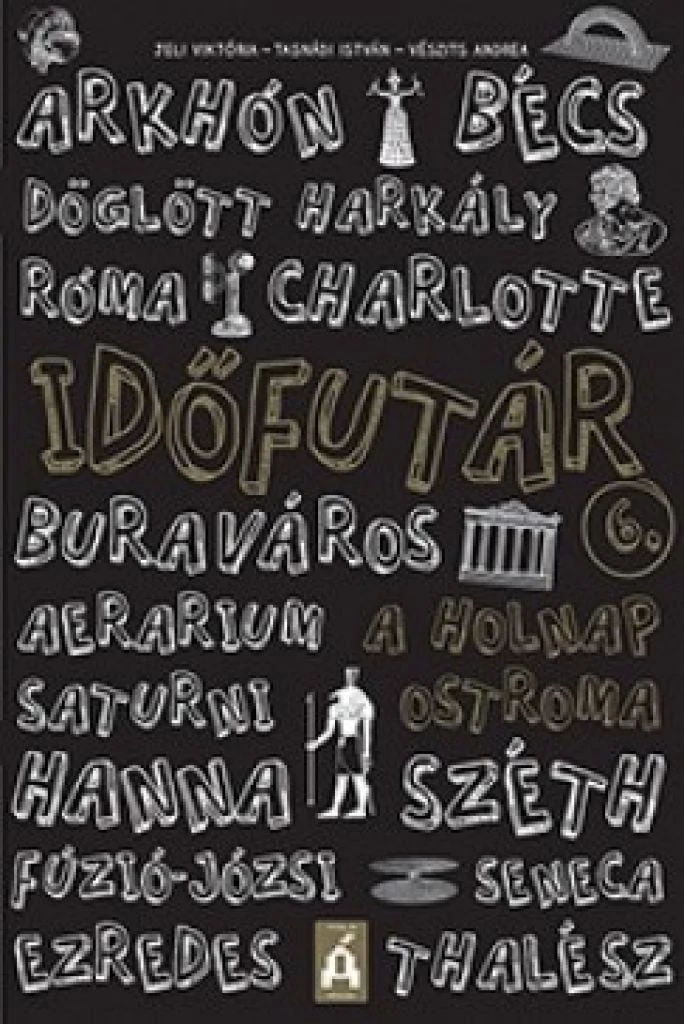 JELI VIKTÓRIA – TASNÁDI ISTVÁN – VÉSZITS ANDREA
ARKHÓN BÉCS
DÖGLÖTT HARKÁLY
RÓMA CHARLOTTE
IDŐFUTÁR
6.
BURAVÁROS
AERARIUM
SATURNI
A HOLNAP
OSTROMA
HANNA SZÉTH
FÚZIÓ-JÓZSI SENECA
EZREDES Á THALÉSZ